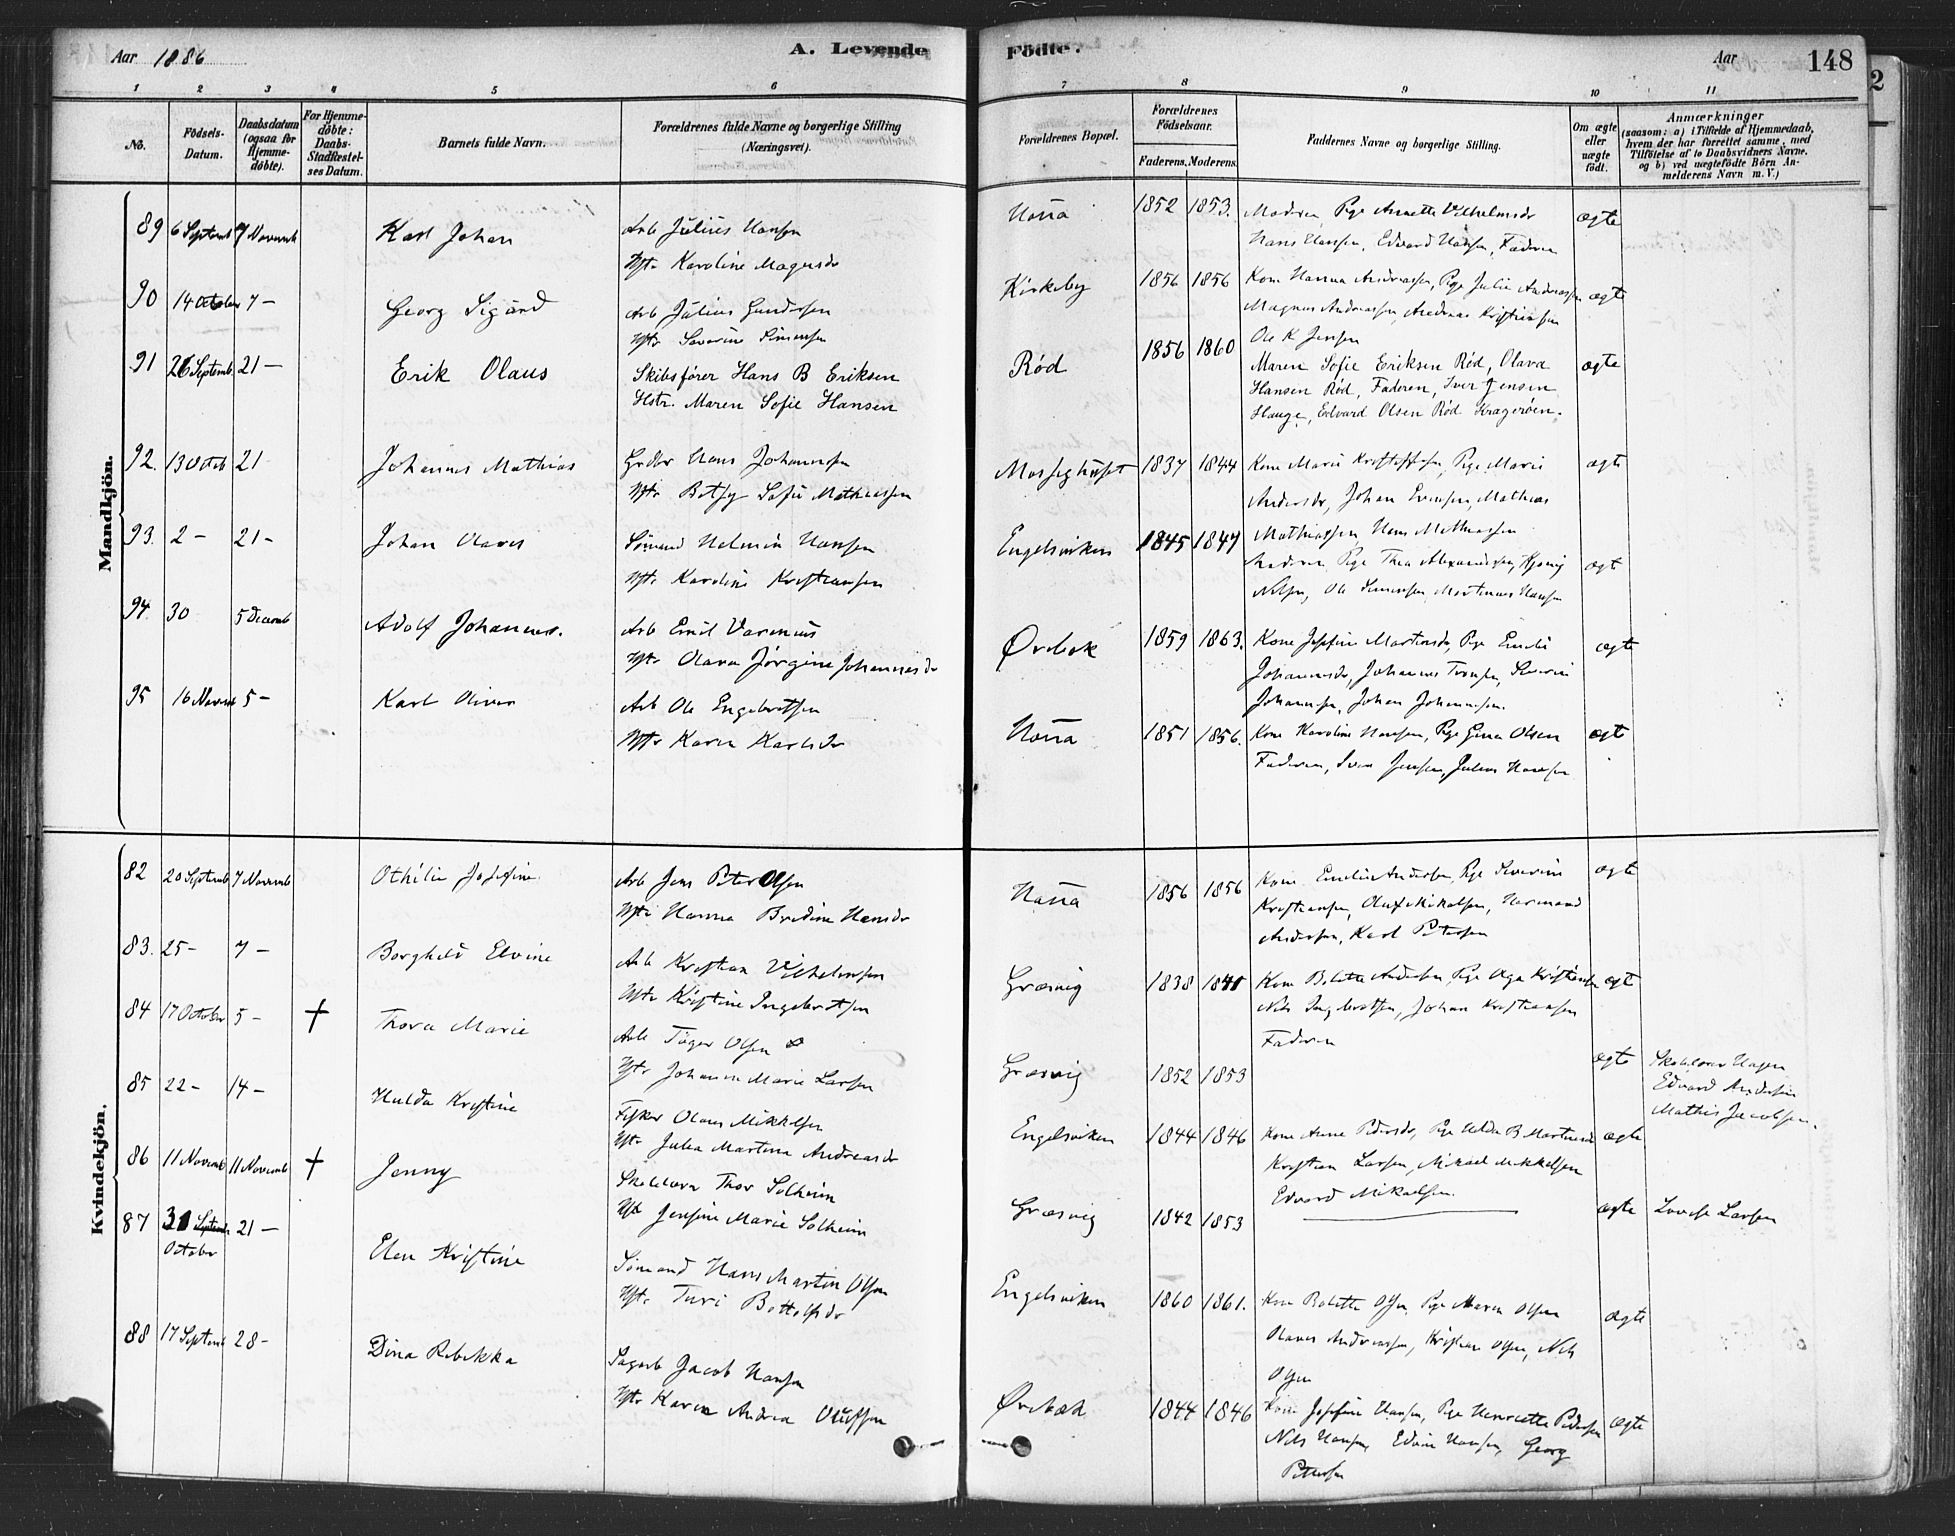 Aar 1886
A. Levende
Födte.
Aar 148
2
1 2 3 4 5 6 7 8 9 10 11
No.
Födsels-
Datum.
Daabsdatum
(ogsaa for
Hjemme-
döbte).
For Hjemme-
döbte:
Daabs-
Stadfæstel-
ses Datum.
Barnets fulde Navn.
Forældrenes fulde Navne og borgerlige Stilling
(Næringsvei).
Forældrenes Bopæl.
Forældrenes
Födselsaar.
Faderens. Moderens.
Faddernes Navne og borgerlige Stilling.
Om ægte
eller
uægte
födt.
Anmærkninger
(saasom: a) i Tilfælde af Hjemmedaab,
hvem der har forrettet samme, med
Tilföielse af to Daabsvidners Navne.
og b) ved uægtefödte Börn An-
melderens Navn m. V.)
Mandkjön.
89 6 Septemb 7 Novemb Karl Johan Arb Julius Hansen
Hstr Karoline Magnsdr
1852 1853. Moderen, Pige Annette Vilhelmsdr ægte
Hans Hansen, Edvard Hansen, Faderen
90 14 October 7 – Georg Sigurd Arb Julius Gundersen
Hstr Severine Simensen
Kirkeby 1856 1856 Kone Hanna Andreasen, Pige Julie Andreassen ægte
Magnus Andreassen, Andreas Kristiansen
Ole K Jensen
91 26 Septemb. 21 – Erik Olaus Skibsfører Hans B Eriksen
Hstr. Maren Sofie Hansen
Rød 1856 1860 Maren Sofie Eriksen Rød, Olava ægte
Hansen Rød, Faderen, Iver Jensen
Hauge, Edvard Olsen Rød Kragerøen.
92. 13 Octob 21 Johannes Mathias Hans Johannsen
Hstr Betsy Sofie Mathiassen
1837 1844 Kone Marie Kristoffersen, Pige Marie ægte
Andersdr, Johan Evensen, Mathias
Mathiassen, Hans Mathiassen
93. 2 – 21 – Johan Olaves Sømand Helmin Hansen
Hstr Karoline Kristiansen
Engelsviken 1845 1847 Pige Thea ægt
Nilsen, Ole Simensen, Martinus Hansen
94. 30 5 Decemb Adolf Johannes. Arb Emil
Hstr Olava Jørgine Johannesdr
Ørebek 1859 1863. Kone Josefine Martinsdr, Pige Emilie ægte
Johannesdr, Johannes Severin
Johannesen, Johan Johannesen.
95 16 Novemb 5 – Karl Oliver Arb Ole Engebretsen
Hstr Karen Karlsdr
1851 1856. Kone Karoline Hansen, Pige Gina Olsen ægt
Faderen, Sven Jensen, Julius Hansen
Kvindekjön.
82 20 Septemb 7 Novemb Othilie Josefine Arb Jens Peter Olsen
Hstr Hanna Bredine Hansdr
1856 1856 Kone Emilie Andersen, Pige Severine ægte
Kristiansen, Olaf Mikalsen, Harmand
Andersen, Karl Petersen
83. 25 – 7 – Borghild Elvine Arb Kristian Vilhelmsen
Hstr Kristine Ingebretsen
Græsvig 1838 1841 Kone Bolette Andersen, Pige Olga Kristiansen ægt
Nils Ingebretsen, Johan Kristiansen
Faderen
84 17 October 5 – † Thora Marie Arb Tøger Olsen
Hstr Johanne Marie Larsen
Græsvig 1852 1853 ægte Skolelærer Hagen
Edvard Andersen
Mathis Jacobsen.
85 22 – 14 – Hulda Kristine Fisker Olaus Mikkelsen
Hstr Julia Martina Andreasdr
Engelsviken 1844 1846 Kone Anne Pedersdr, Pige Hulda B Martinsdr ægte
Kristian Larsen, Mikael Mikkelsen
Edvard Mikaelsen.
86 11 Novemb 11 Novemb † Jenny Skolelærer Thor Solheim
Hstr Jensine Marie Solheim
Græsvig 1842 1853 ægte Lovise Larsen
87 31 Septemb 21 – Elen Kristine Sømand Hans Martin Olsen
October
Hstr. Turi Bottolfsdr
Engelsviken 1860 1861. Kone Bolette Olsen, Pige Maren Olsen ægte
Olaves Andreassen, Kristian Olsen, Nils
Olsen
88 17 Septemb 28 – Dina Rebekka Sagarb Jacob Hansen
Hstr Karen Andrea Olufsen
Ørebæk 1844 1846 Kone Josefine Hansen, Pige Henriette Pedersen ægte
Nils Hansen, Edvin Hansen, Georg
Pettersen